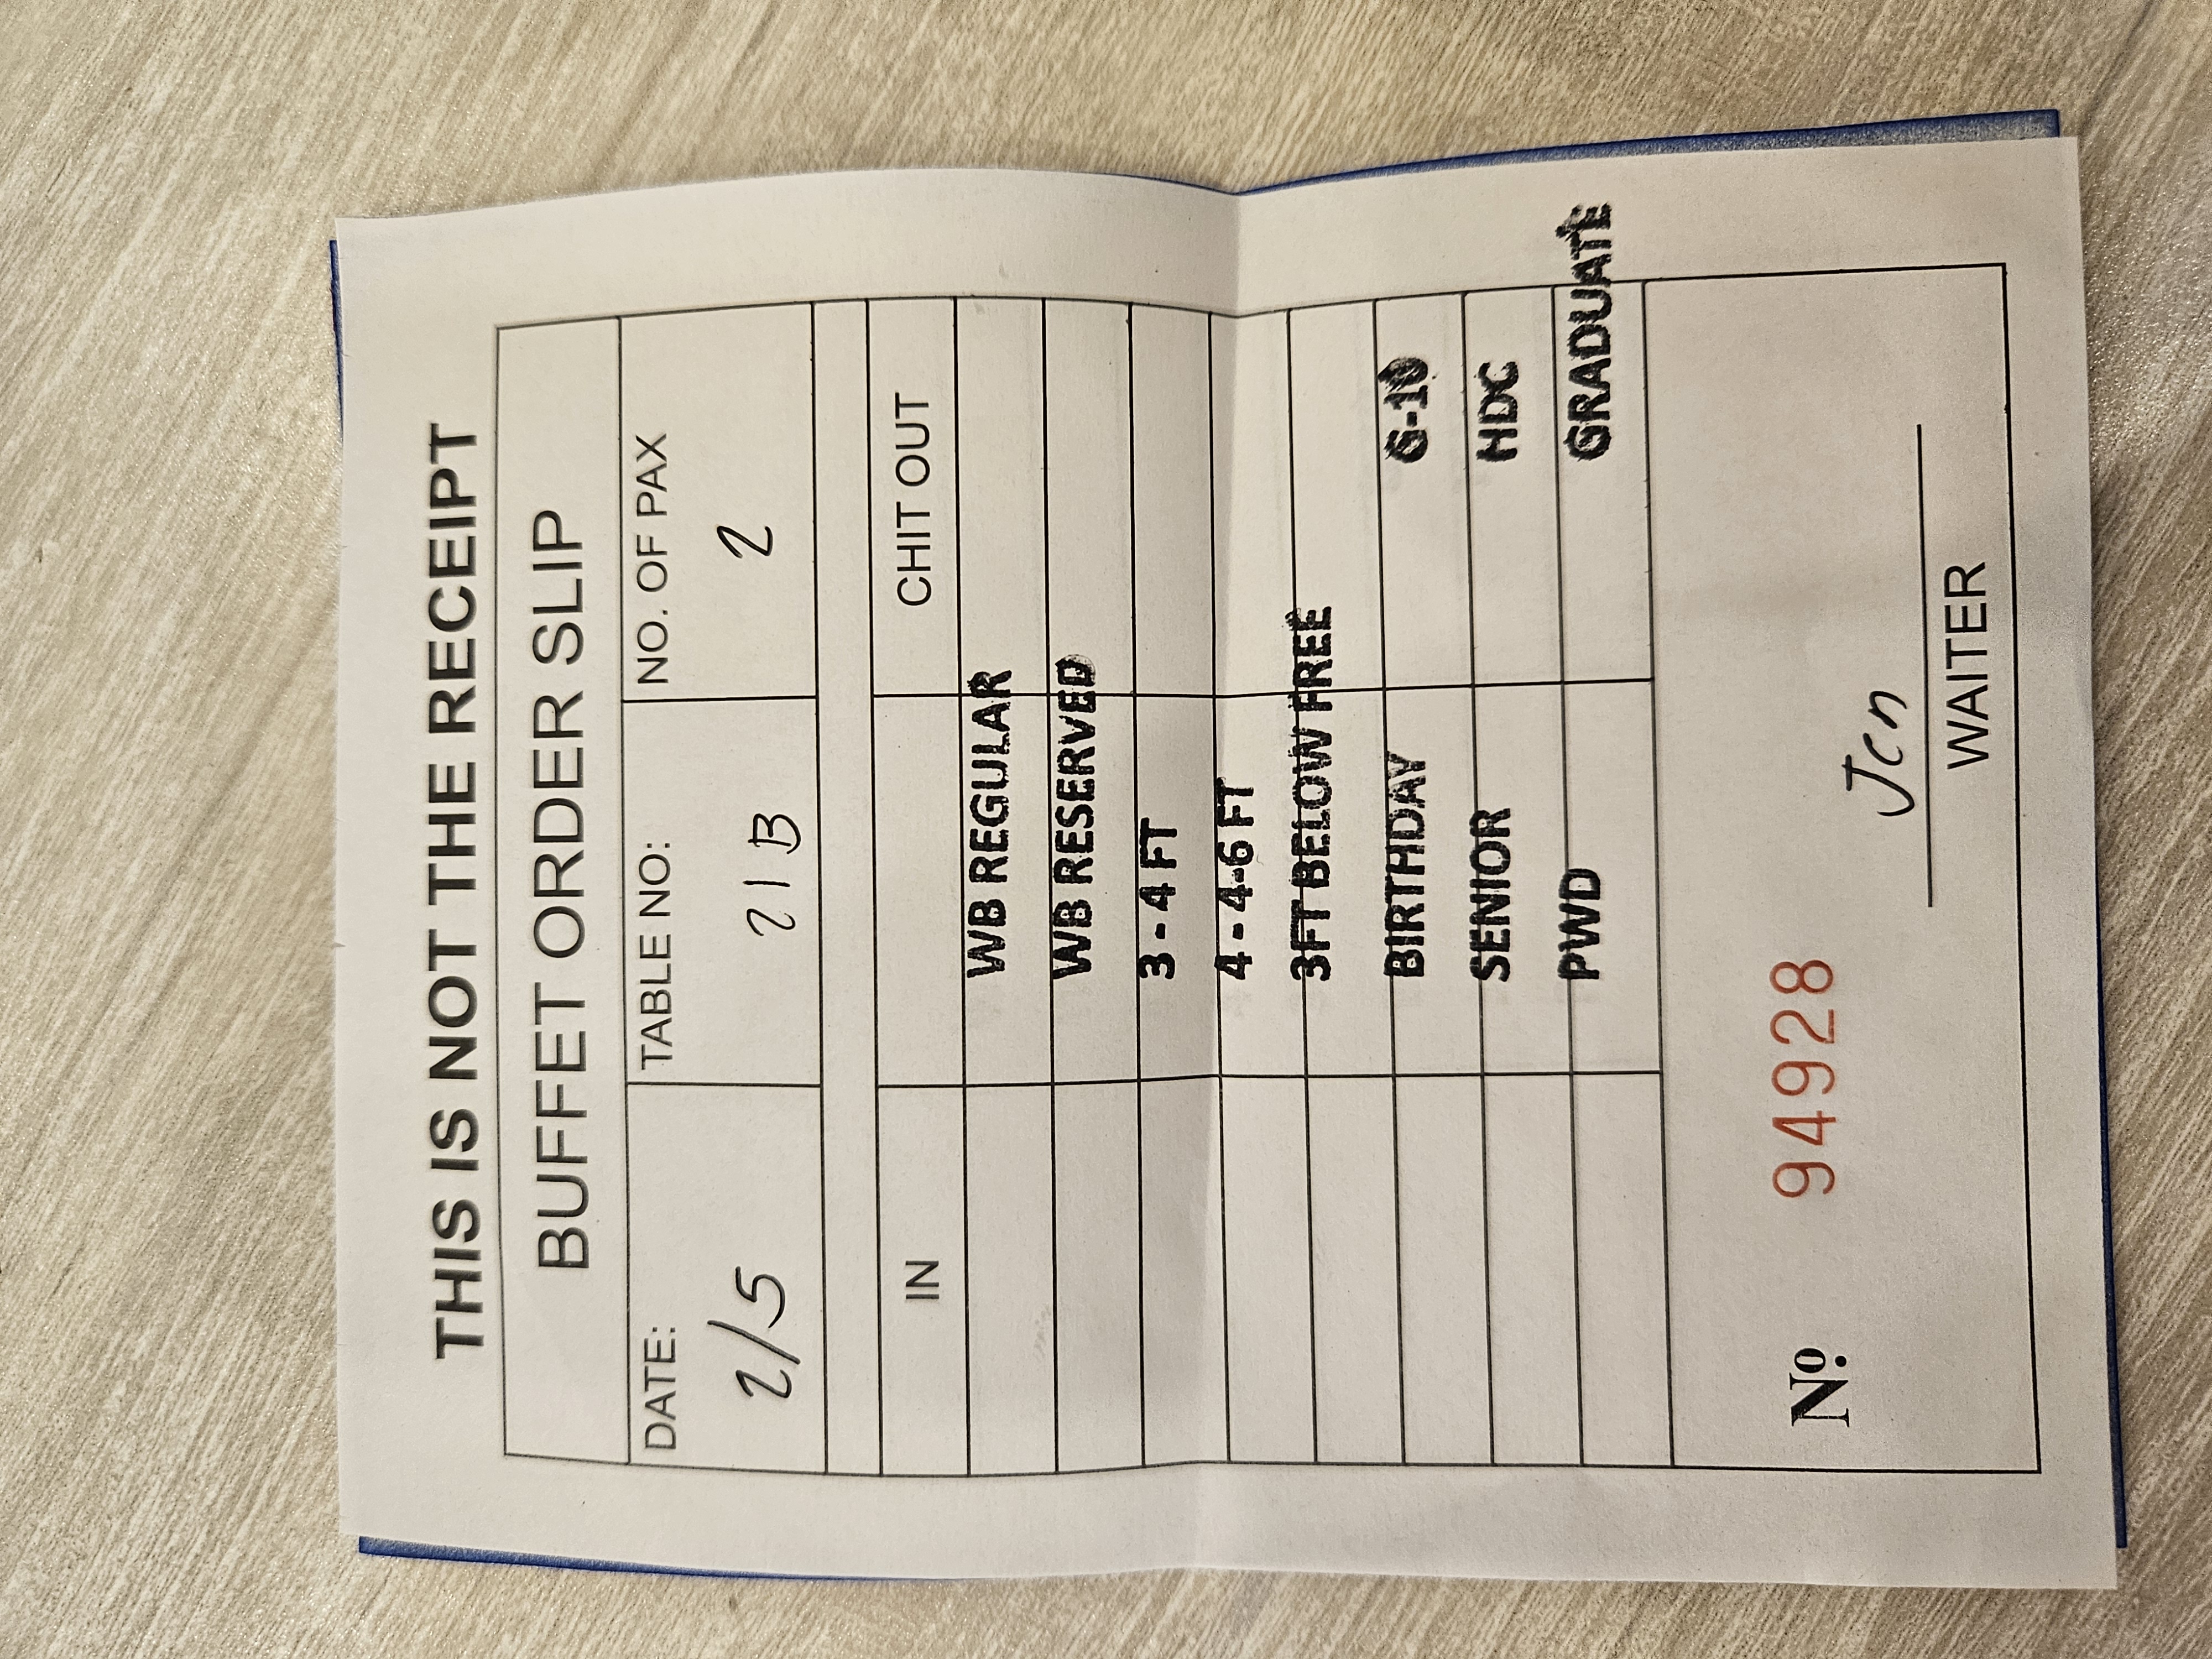 THIS IS NOT THE RECEIPT
BUFFET ORDER SLIP
DATE: TABLE NO: NO. OF PAX
2/5 21B 2
IN CHIT OUT
WB REGULAR
WB RESERVED
3 - 4 FT
4 - 4-6 FT
3FT BELOW FREE
BIRTHDAY G-10
SENIOR HDC
PWD GRADUATE
Nº 94928
Jcn
WAITER